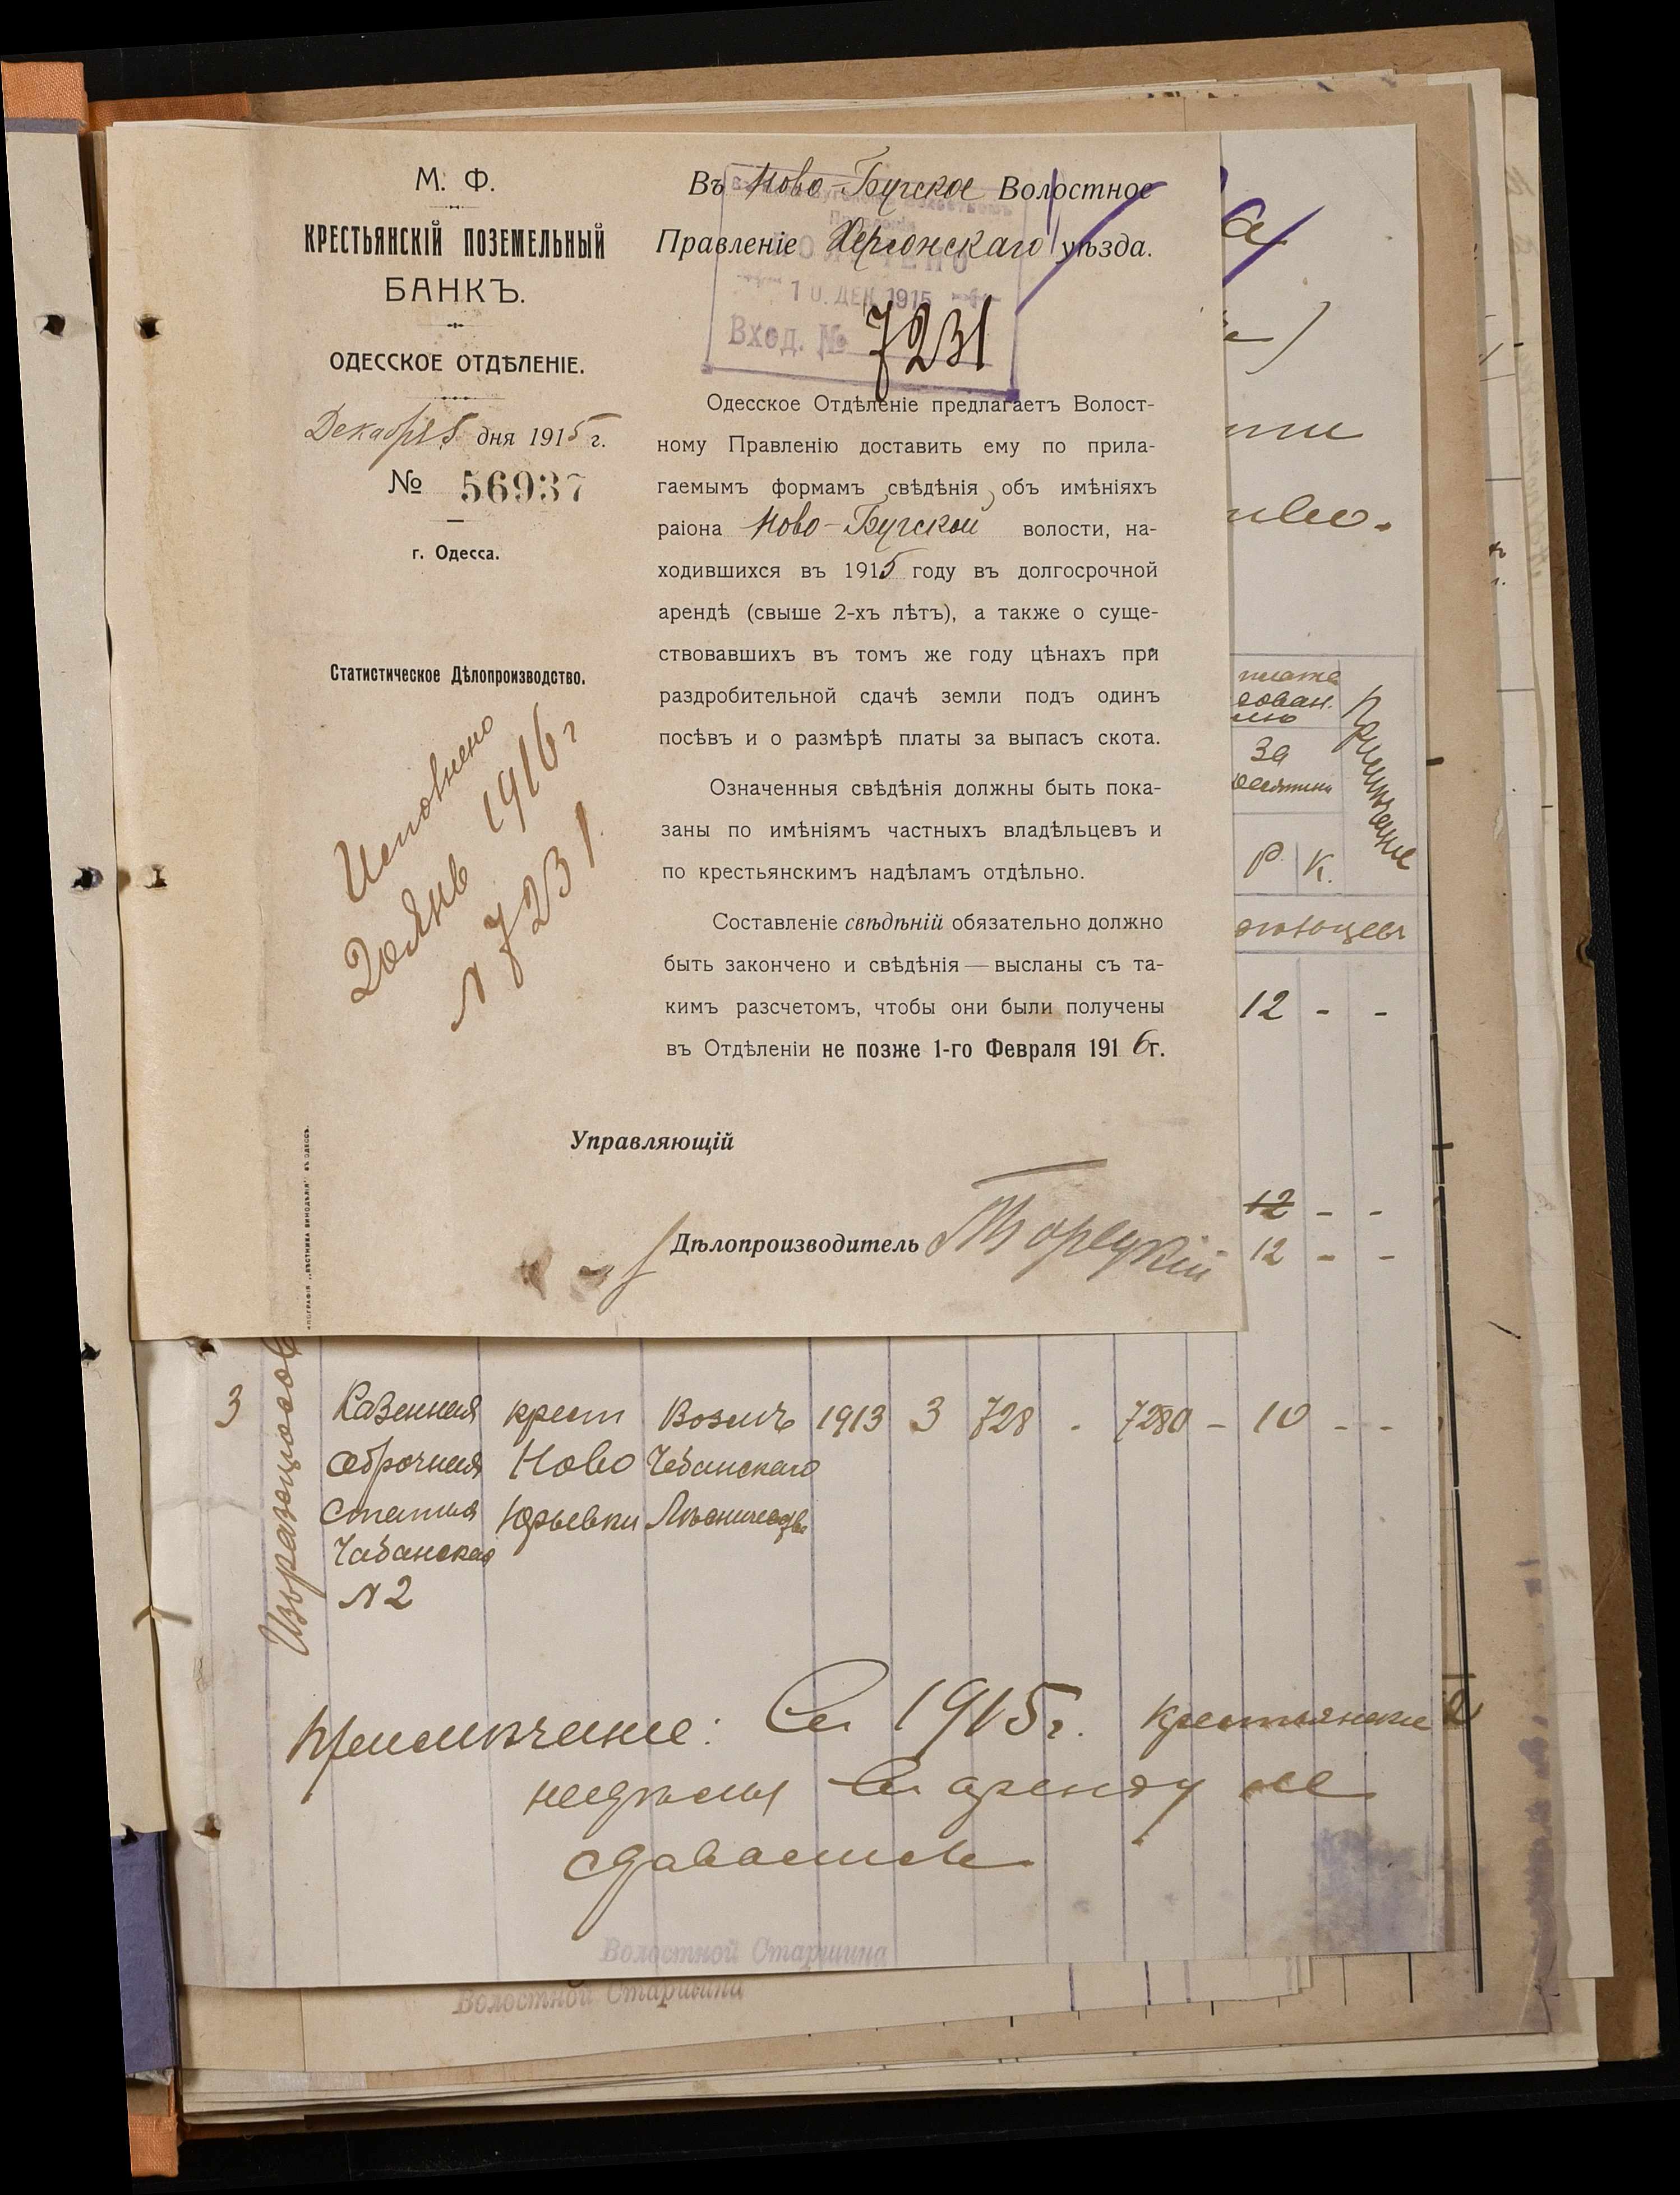 М. Ф.
КРЕСТЬЯНСКІЙ ПОЗЕМЕЛЬНЫЙ
БАНКЪ.
ОДЕССКОЕ ОТДѢЛЕНІЕ.
Декабря 5 дня 1915 г.
№ 56937
г. Одесса.
Статистическое Дѣлопроизводство.
Исполнено
20 Янв 1916 г
N 7231
Въ Ново-Бугское Волостное
Правленіе Херсонскаго уѣзда.
10. ДЕК 1915
Вход. № 7231
Одесское Отдѣленіе предлагаетъ Волост-
ному Правленію доставить ему по прила-
гаемымъ формамъ свѣдѣнія объ имѣніяхъ
раіона Ново-Бугской волости, на-
ходившихся въ 1915 году въ долгосрочной
арендѣ (свыше 2-хъ лѣтъ), а также о суще-
ствовавшихъ въ томъ же году цѣнахъ при
раздробительной сдачѣ земли подъ одинъ
посѣвъ и о размѣрѣ платы за выпасъ скота.
Означенныя свѣдѣнія должны быть пока-
заны по имѣніямъ частныхъ владѣльцевъ и
по крестьянскимъ надѣламъ отдѣльно.
Составленіе свѣдѣній обязательно должно
быть закончено и свѣдѣнія — высланы съ та-
кимъ разсчетомъ, чтобы они были получены
въ Отдѣленіи не позже 1-го Февраля 1916г.
Управляющій
Дѣлопроизводитель Торецкій
за
десятину
Р. К.
Примѣчаніе
12 - -
12 - -
12 - -
3 Казенная крест Возлѣ 1913 3 728 - 7280 - 10 - -
оброчная Ново Чебанскаго
статья Юрьевки Лѣсничества
Чабанская
N 2
Примѣчаніе: Въ 1915 г. крестьянскіе
надѣлы въ аренду не
сдавались
Волостной Старшина
Волостной Старшина